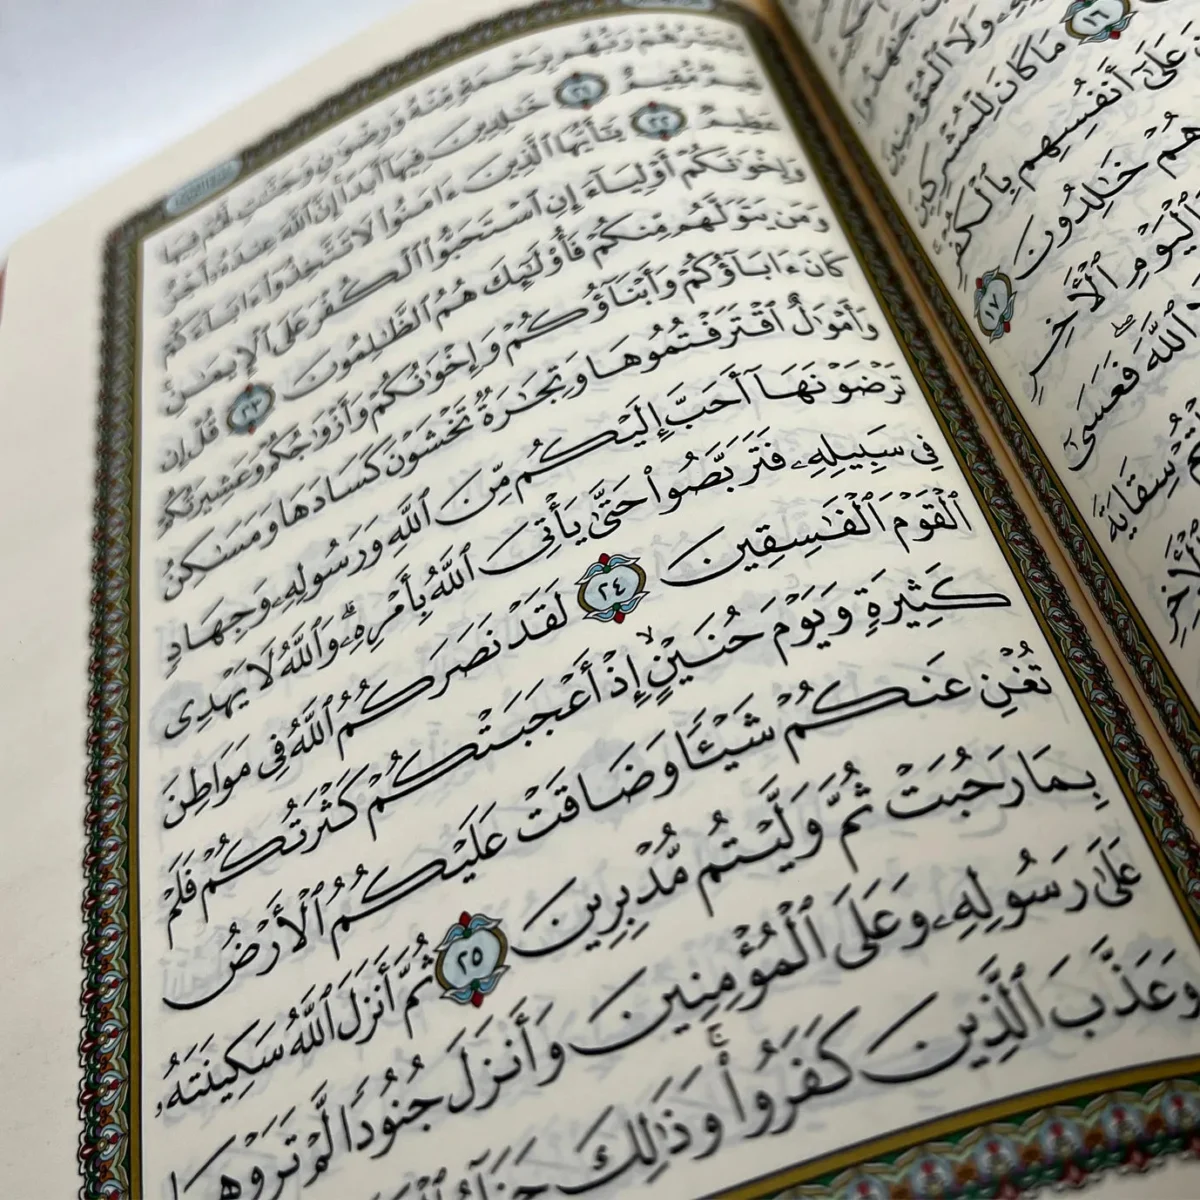 جَٰهَدُوا۟
وَلَا ٱلْمُؤْمِنِينَ
١٦ مَا كَانَ لِلْمُشْرِكِينَ
عَلَىٰٓ أَنفُسِهِم بِٱلْكُفْرِ
هُمْ خَٰلِدُونَ ١٧
وَٱلْيَوْمِ ٱلْأَخِرِ
ٱللَّهَ ۖ فَعَسَىٰٓ
سِقَايَةَ
ٱلْأَخِرِ
يُبَشِّرُهُمْ رَبُّهُم بِرَحْمَةٍ مِّنْهُ وَرِضْوَٰنٍ وَجَنَّٰتٍ لَّهُمْ فِيهَا
نَعِيمٌ مُّقِيمٌ ٢١ خَٰلِدِينَ فِيهَآ أَبَدًا إِنَّ ٱللَّهَ عِندَهُۥٓ أَجْرٌ
عَظِيمٌ ٢٢ يَٰٓأَيُّهَا ٱلَّذِينَ ءَامَنُوا۟ لَا تَتَّخِذُوٓا۟ ءَابَآءَكُمْ
وَإِخْوَٰنَكُمْ أَوْلِيَآءَ إِنِ ٱسْتَحَبُّوا۟ ٱلْكُفْرَ عَلَى ٱلْإِيمَٰنِ
وَمَن يَتَوَلَّهُم مِّنكُمْ فَأُو۟لَٰٓئِكَ هُمُ ٱلظَّٰلِمُونَ ٢٣ قُلْ إِن
كَانَ ءَابَآؤُكُمْ وَأَبْنَآؤُكُمْ وَإِخْوَٰنُكُمْ وَأَزْوَٰجُكُمْ وَعَشِيرَتُكُمْ
وَأَمْوَٰلٌ ٱقْتَرَفْتُمُوهَا وَتِجَٰرَةٌ تَخْشَوْنَ كَسَادَهَا وَمَسَٰكِنُ
تَرْضَوْنَهَآ أَحَبَّ إِلَيْكُم مِّنَ ٱللَّهِ وَرَسُولِهِۦ وَجِهَادٍ
فِى سَبِيلِهِۦ فَتَرَبَّصُوا۟ حَتَّىٰ يَأْتِىَ ٱللَّهُ بِأَمْرِهِۦ ۗ وَٱللَّهُ لَا يَهْدِى
ٱلْقَوْمَ ٱلْفَٰسِقِينَ ٢٤ لَقَدْ نَصَرَكُمُ ٱللَّهُ فِى مَوَاطِنَ
كَثِيرَةٍ وَيَوْمَ حُنَيْنٍ ۙ إِذْ أَعْجَبَتْكُمْ كَثْرَتُكُمْ فَلَمْ
تُغْنِ عَنكُمْ شَيْـًٔا وَضَاقَتْ عَلَيْكُمُ ٱلْأَرْضُ
بِمَا رَحُبَتْ ثُمَّ وَلَّيْتُم مُّدْبِرِينَ ٢٥ ثُمَّ أَنزَلَ ٱللَّهُ سَكِينَتَهُۥ
عَلَىٰ رَسُولِهِۦ وَعَلَى ٱلْمُؤْمِنِينَ وَأَنزَلَ جُنُودًا لَّمْ تَرَوْهَا
وَعَذَّبَ ٱلَّذِينَ كَفَرُوا۟ ۚ وَذَٰلِكَ جَزَآءُ